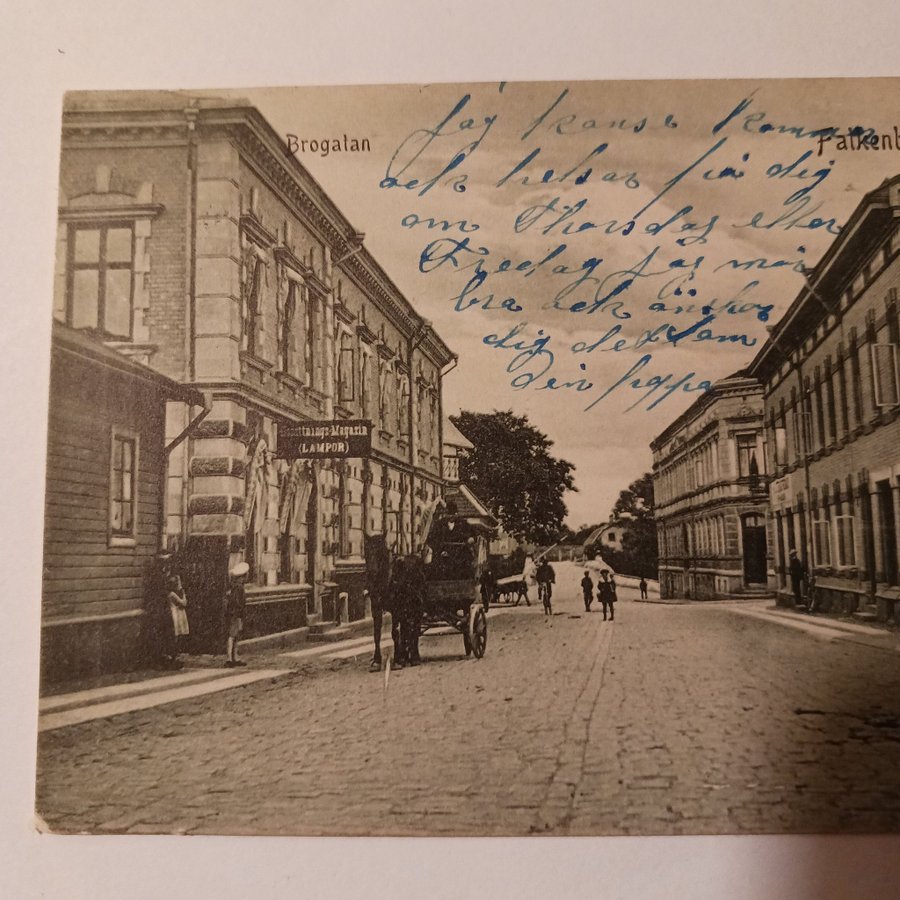 Brogatan
Falkenb
Jag kanse kommer
ock helsar på dig
om Thorsdag eller
Fredag jag mår
bra ock änskar
dig det sam
din pappa
Bosettnings-Magasin
(LAMPOR)